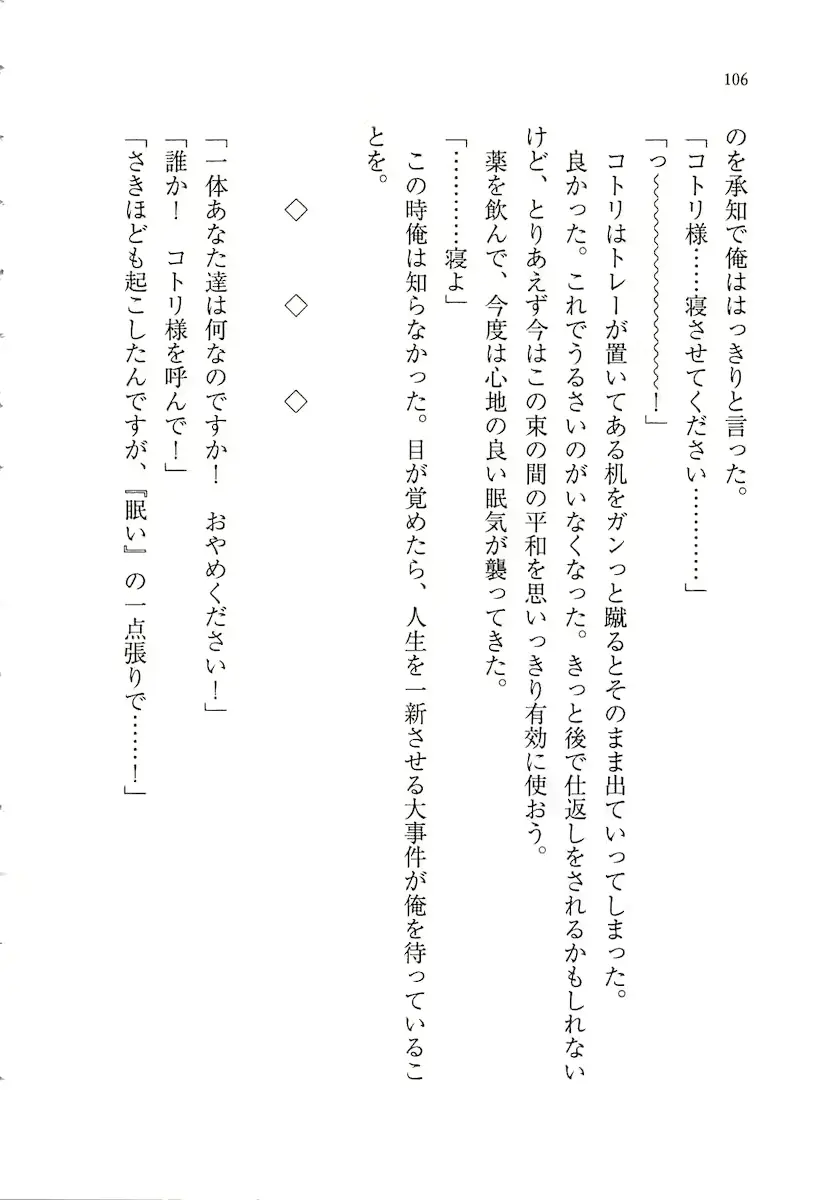 106
のを承知で俺ははっきりと言った。
「コトリ様……寝させてください…………」
「っ～～～～～～～～～～！」
　コトリはトレーが置いてある机をガンっと蹴るとそのまま出ていってしまった。
　良かった。これでうるさいのがいなくなった。きっと後で仕返しをされるかもしれない
けど、とりあえず今はこの束の間の平和を思いっきり有効に使おう。
　薬を飲んで、今度は心地の良い眠気が襲ってきた。
「…………寝よ」
　この時俺は知らなかった。目が覚めたら、人生を一新させる大事件が俺を待っているこ
とを。
◇　◇　◇
「一体あなた達は何なのですか！　おやめください！」
「誰か！　コトリ様を呼んで！」
「さきほども起こしたんですが、『眠い』の一点張りで……！」